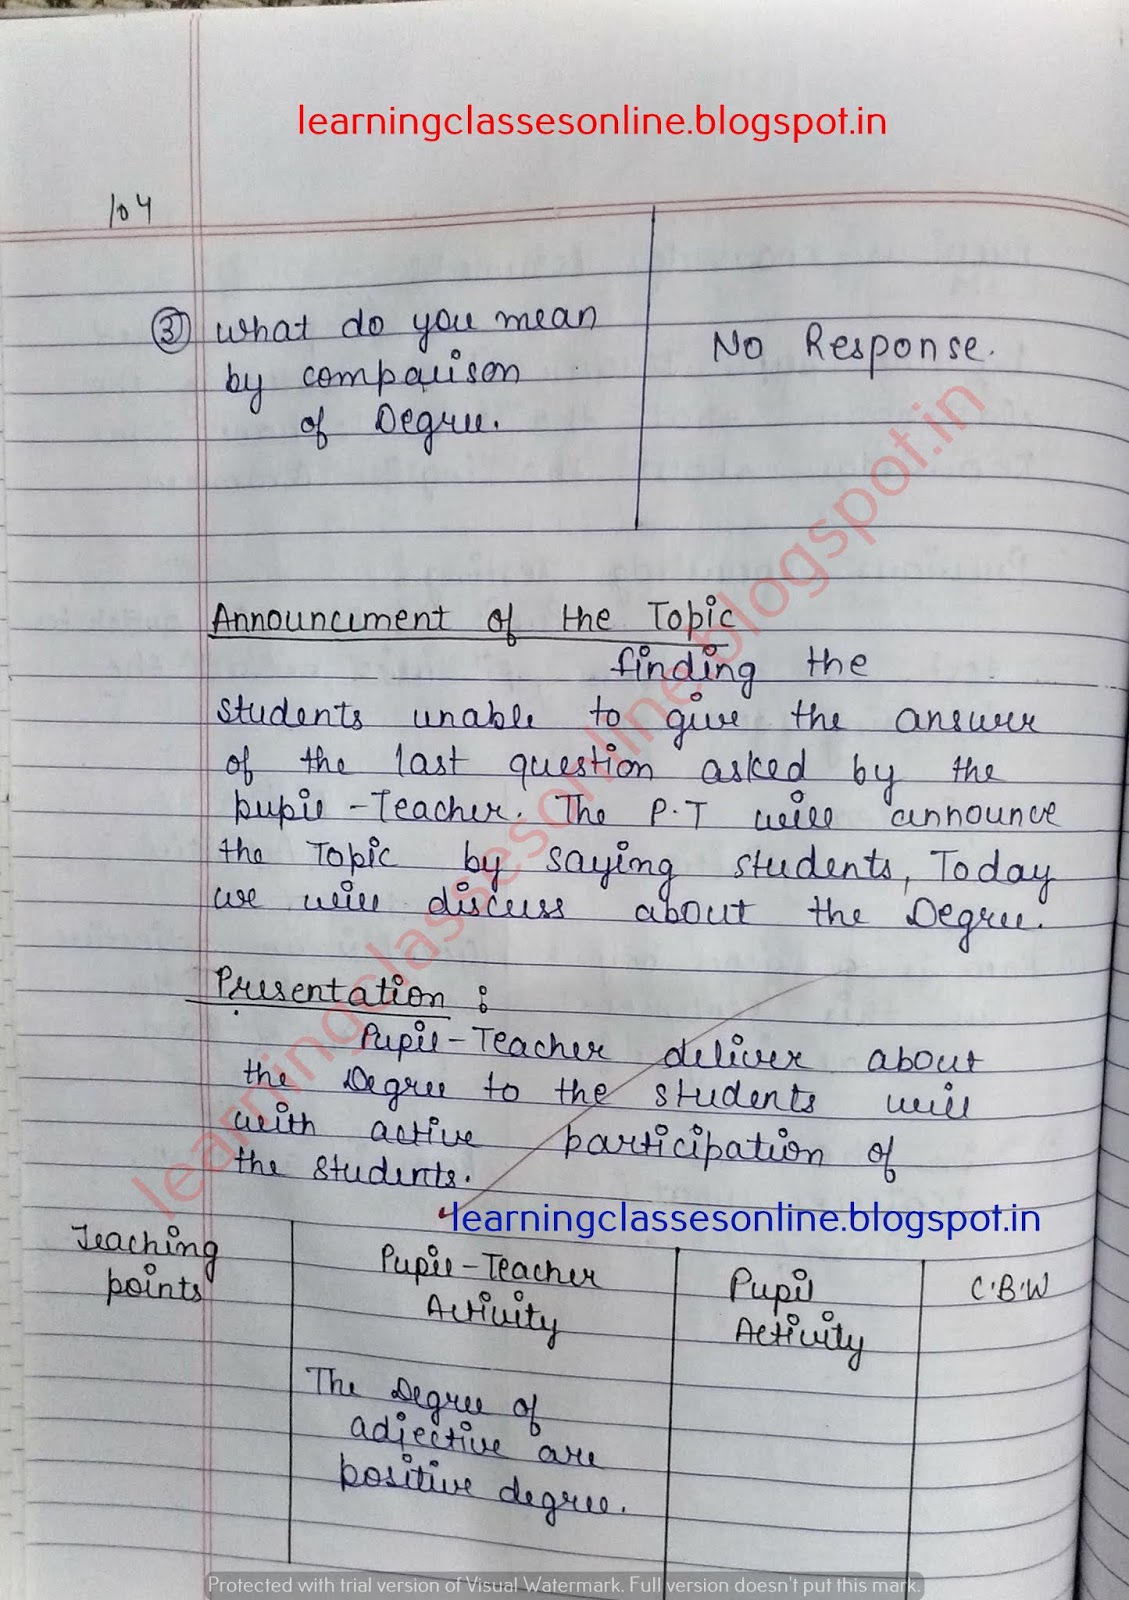 learningclassesonline.blogspot.in
104
③ What do you mean
by comparison
of Degree.
No Response.
Announcement of the Topic
finding the
students unable to give the answer
of the last question asked by the
pupil-Teacher. The P.T will announce
the Topic by saying students, Today
we will discuss about the Degree.
Presentation :
Pupil-Teacher deliver about
the Degree to the students will
with active participation of
the students.
learningclassesonline.blogspot.in
learningclassesonline.blogspot.in
Teaching
points
Pupil-Teacher
Activity
Pupil
Activity
C.B.W
The Degree of
adjective are
positive degree.
Protected with trial version of Visual Watermark. Full version doesn't put this mark.